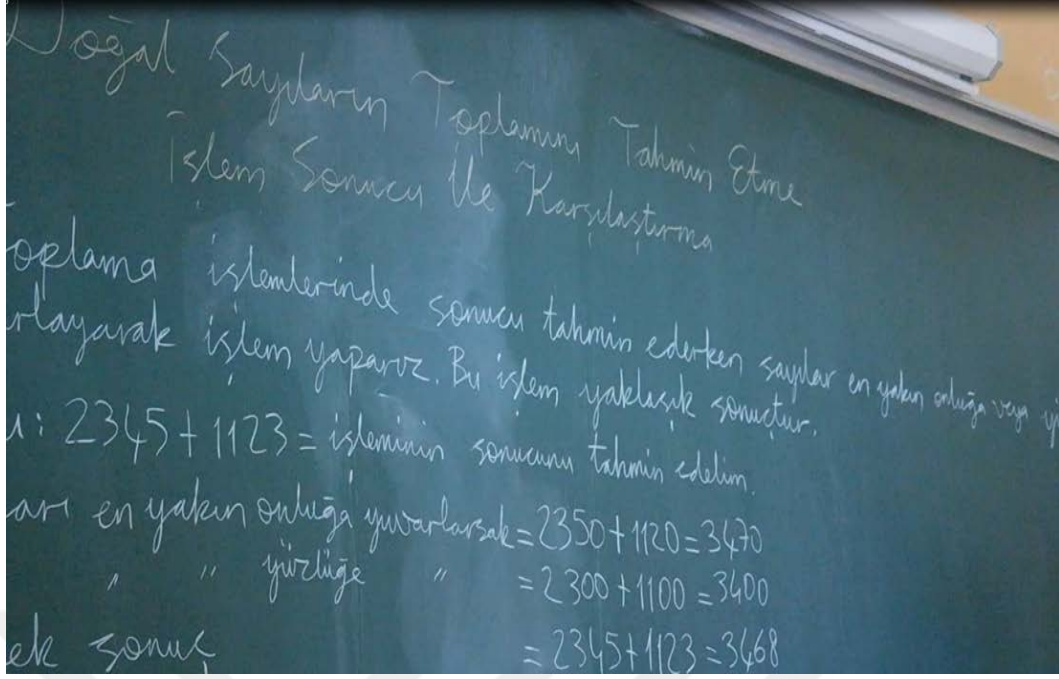 Doğal Sayıların Toplamını Tahmin Etme
İşlem Sonucu İle Karşılaştırma
oplama işlemlerinde sonucu tahmin ederken sayılar en yakın onluğa veya
rlayarak işlem yaparız. Bu işlem yaklaşık sonuçtur.
u: 2345+1123= işleminin sonucunu tahmin edelim.
arı en yakın onluğa yuvarlarsak=2350+1120=3470
" " yüzlüğe " =2300+1100=3400
ek sonuç =2345+1123=3468